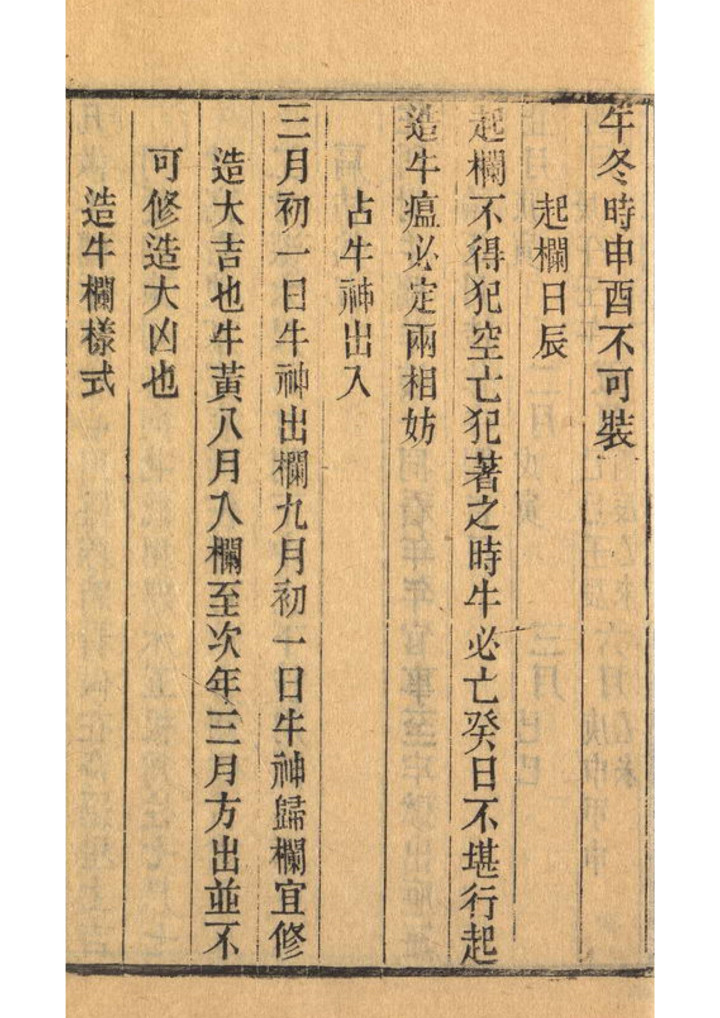 午冬時申酉不可裝
起欄日辰
起欄不得犯空亡犯著之時牛必亡癸日不堪行起
造牛瘟必定兩相妨
占牛神出入
三月初一日牛神出欄九月初一日牛神歸欄宜修
造大吉也牛黃八月入欄至次年三月方出並不
可修造大凶也
造牛欄樣式